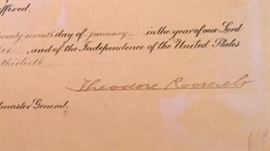 affixed.
twenty seventh day of January in the year of our Lord
and of the Independence of the United States
thirtieth.
Theodore Roosevelt
master General.